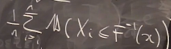 1/n Σ_{i=1}^{n} 𝟙(X_i ≤ F^{-1}(x))